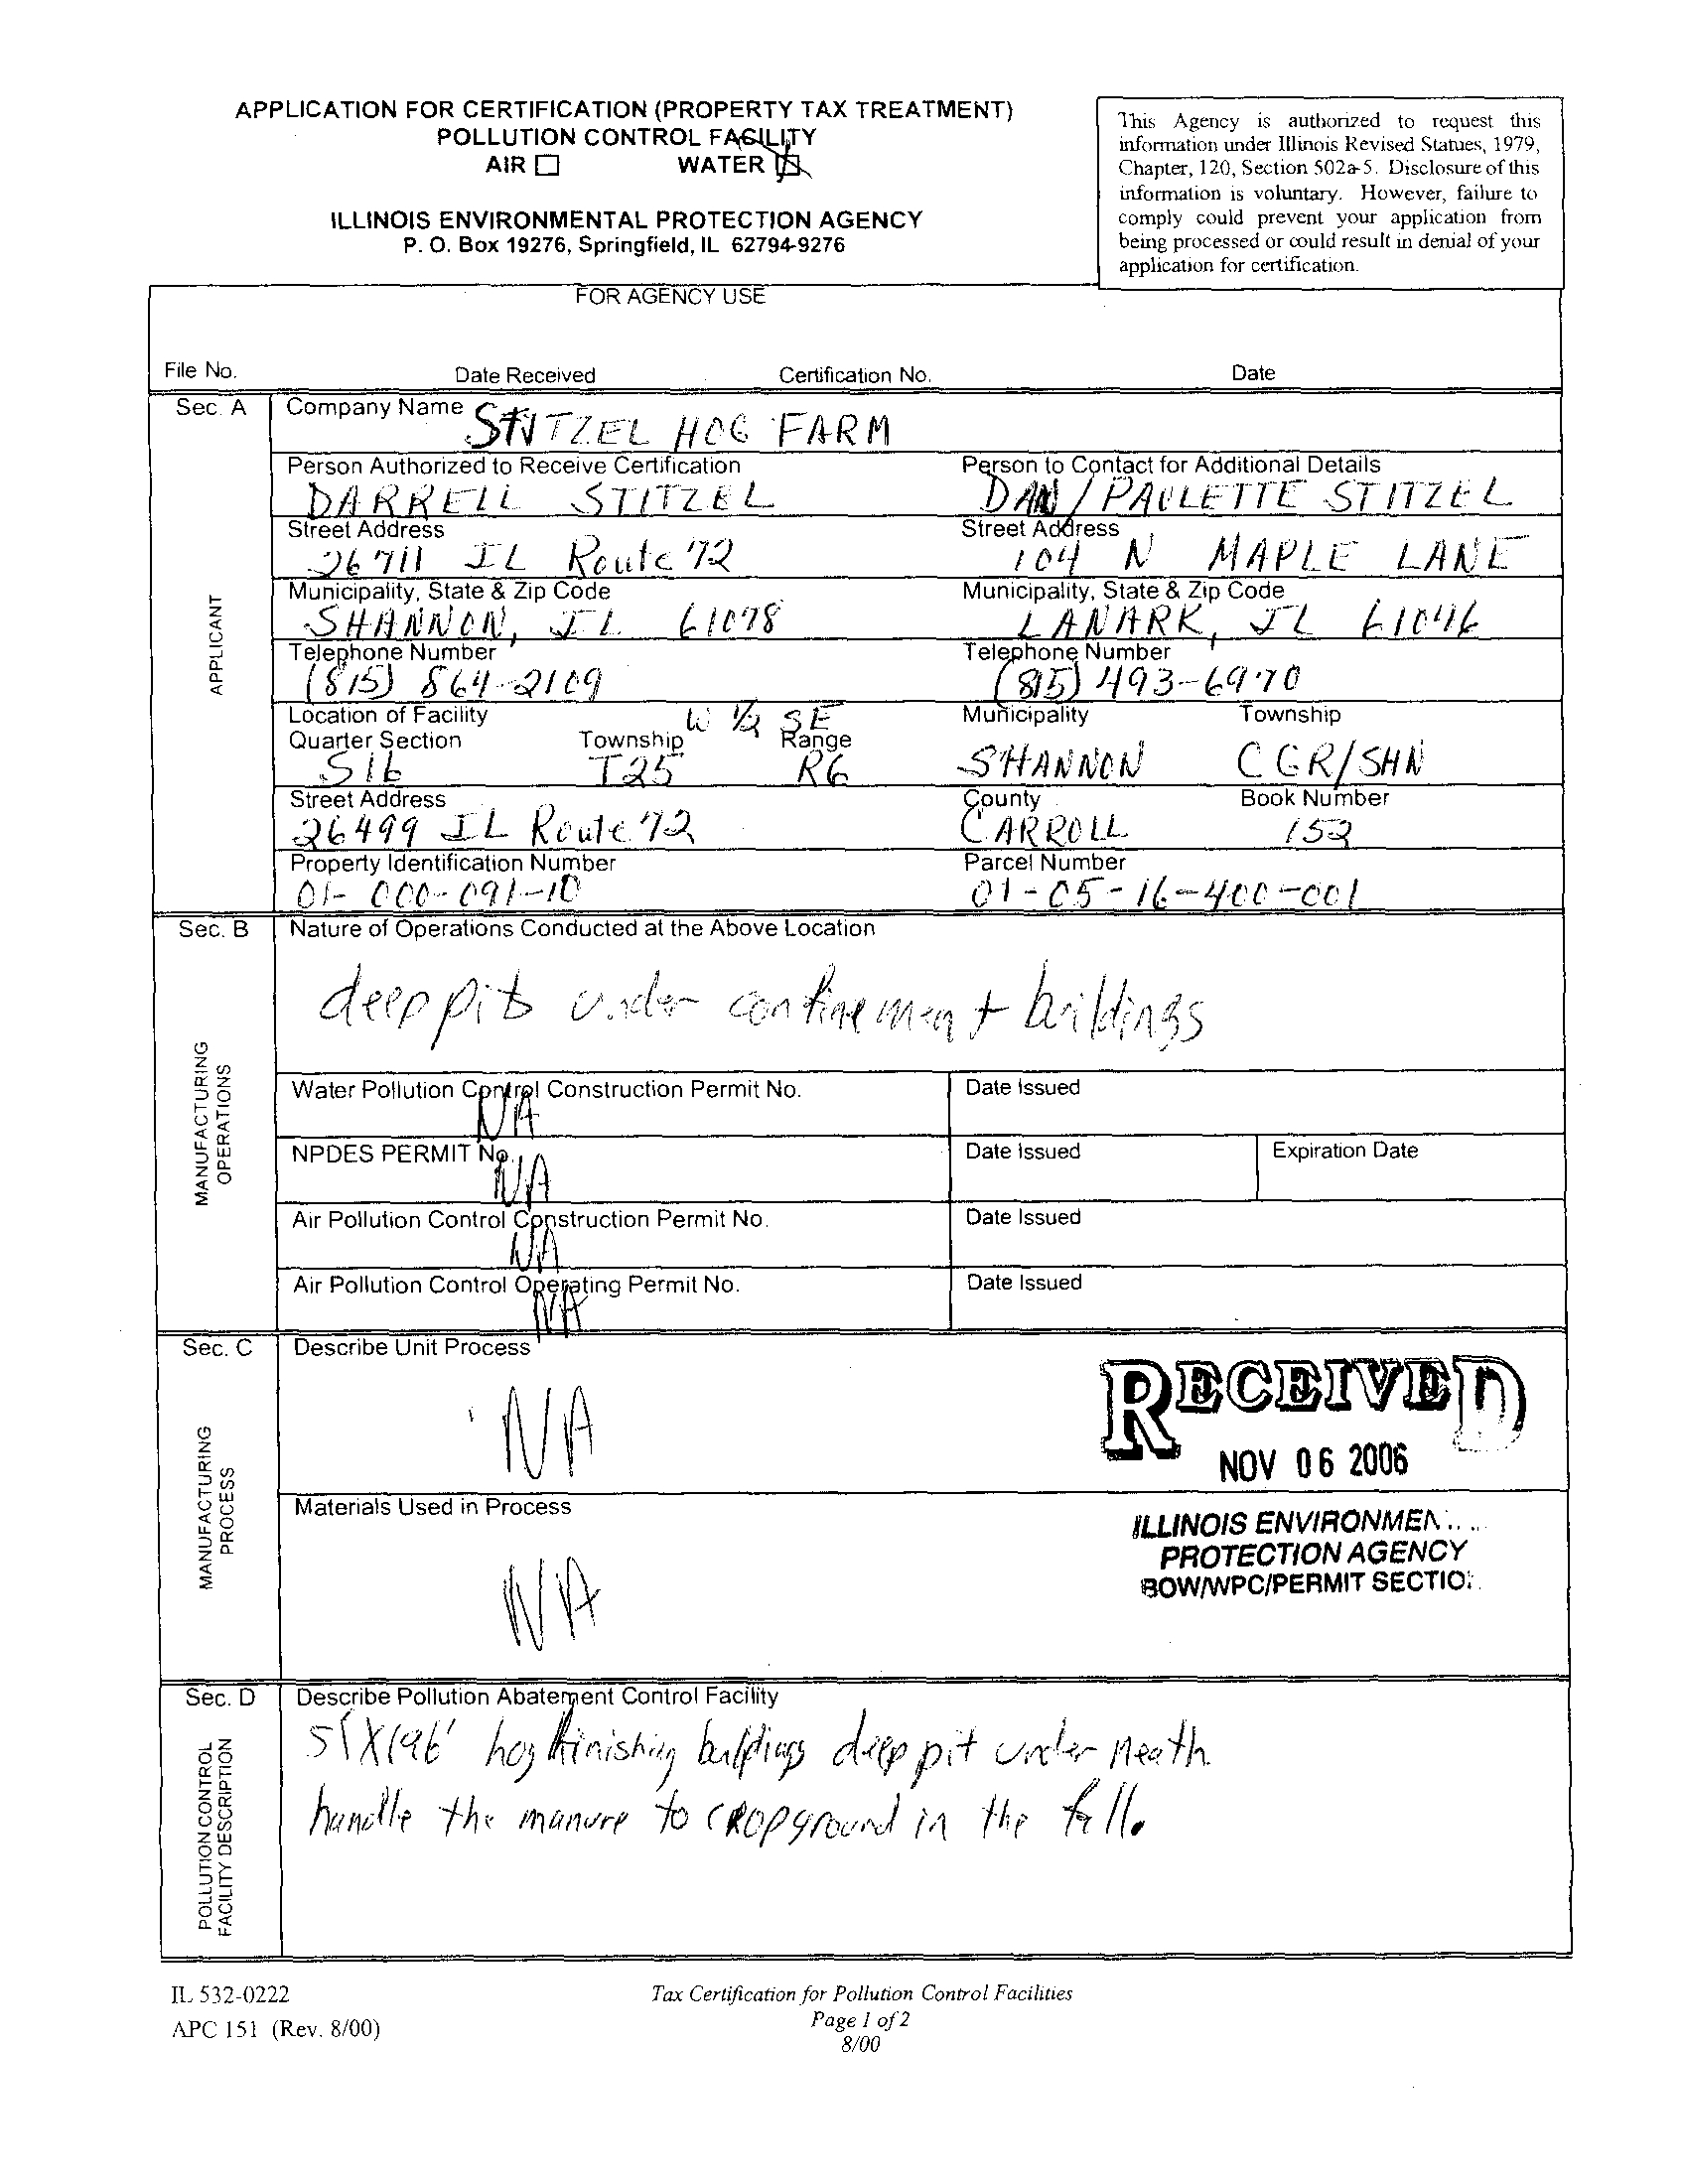 APPLICATION FOR CERTIFICATION (PROPERTY TAX TREATMENT)
POLLUTION CONTROL FACILITY
AIR WATER
ILLINOIS ENVIRONMENTAL PROTECTION AGENCY
P. O. Box 19276, Springfield, IL 62794-9276
This Agency is authorized to request this
information under Illinois Revised Statues, 1979,
Chapter, 120, Section 502a-5. Disclosure of this
information is voluntary. However, failure to
comply could prevent your application from
being processed or could result in denial of your
application for certification.
FOR AGENCY USE
File No. Date Received Certification No. Date
Sec. A
APPLICANT
Company Name STITZEL HOG FARM
Person Authorized to Receive Certification Person to Contact for Additional Details
DARRELL STITZEL DAN / PAULETTE STITZEL
Street Address Street Address
26711 IL Route 72 104 N MAPLE LANE
Municipality, State & Zip Code Municipality, State & Zip Code
SHANNON, IL 61078 LANARK, IL 61046
Telephone Number Telephone Number
(815) 864-2109 (815) 493-6970
Location of Facility W 1/2 SE Municipality Township
Quarter Section Township Range
S16 T25 R6 SHANNON CGR/SHN
Street Address County Book Number
26499 IL Route 72 CARROLL 152
Property Identification Number Parcel Number
01-000-091-10 01-05-16-400-001
Sec. B
MANUFACTURING
OPERATIONS
Nature of Operations Conducted at the Above Location
deep pits under confinement buildings
Water Pollution Control Construction Permit No. Date Issued
NA
NPDES PERMIT No. Date Issued Expiration Date
NA
Air Pollution Control Construction Permit No. Date Issued
NA
Air Pollution Control Operating Permit No. Date Issued
NA
Sec. C
MANUFACTURING
PROCESS
Describe Unit Process
NA
RECEIVED
NOV 06 2006
Materials Used in Process
NA
ILLINOIS ENVIRONMEN
PROTECTION AGENCY
BOW/WPC/PERMIT SECTIO
Sec. D
POLLUTION CONTROL
FACILITY DESCRIPTION
Describe Pollution Abatement Control Facility
51X196' hog finishing buildings deep pit under neath
handle the manure to cropground in the fall.
IL 532-0222
APC 151 (Rev. 8/00)
Tax Certification for Pollution Control Facilities
Page 1 of 2
8/00